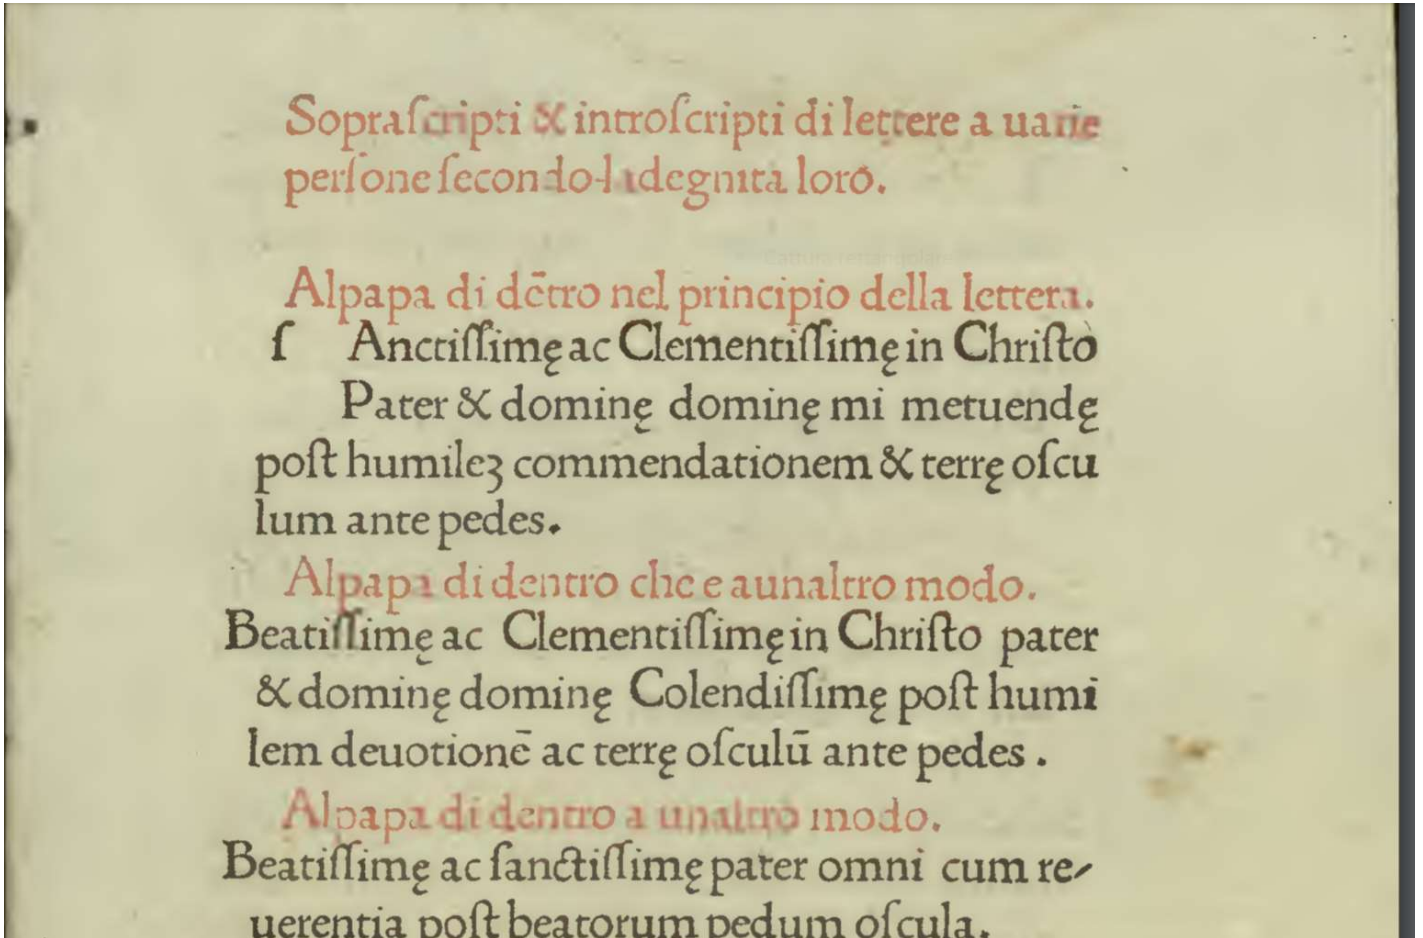 Sopraſcripti & introſcripti di lettere a uarie
perſone ſecondo la degnita loro.
Alpapa di dētro nel principio della lettera.
ſ Anctiſſimę ac Clementiſſimę in Chriſto
Pater & dominę dominę mi metuendę
poſt humileꝫ commendationem & terrę oſcu
lum ante pedes.
Alpapa di dentro che e aunaltro modo.
Beatiſſimę ac Clementiſſimę in Chriſto pater
& dominę dominę Colendiſſimę poſt humi
lem deuotionē ac terrę oſculū ante pedes .
Alpapa di dentro a unaltro modo.
Beatiſſimę ac ſanctiſſimę pater omni cum re⸗
uerentia poſt beatorum pedum oſcula.